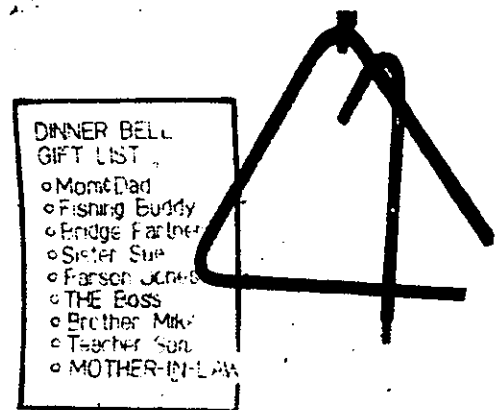 DINNER BELL
GIFT LIST
o Mom & Dad
o Fishing Buddy
o Bridge Partner
o Sister Sue
o Parson Jones
o THE Boss
o Brother Mike
o Teacher
o MOTHER-IN-LAW